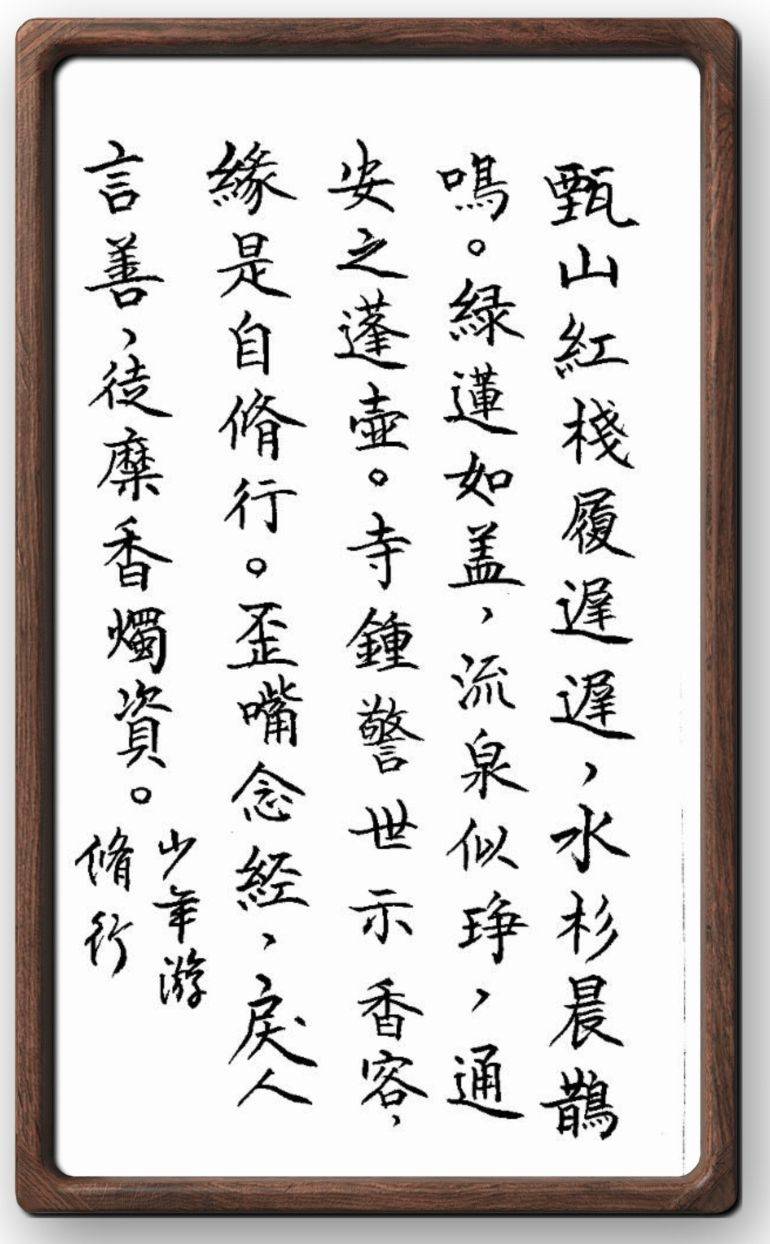 甄山紅棧履遲遲，水杉晨鵲
鳴。緑蓮如盖，流泉似琤，通
安之蓬壺。寺鍾警世示香客，
緣是自脩行。歪嘴念経，戾人
言善，徒糜香燭資。
少年游
脩行